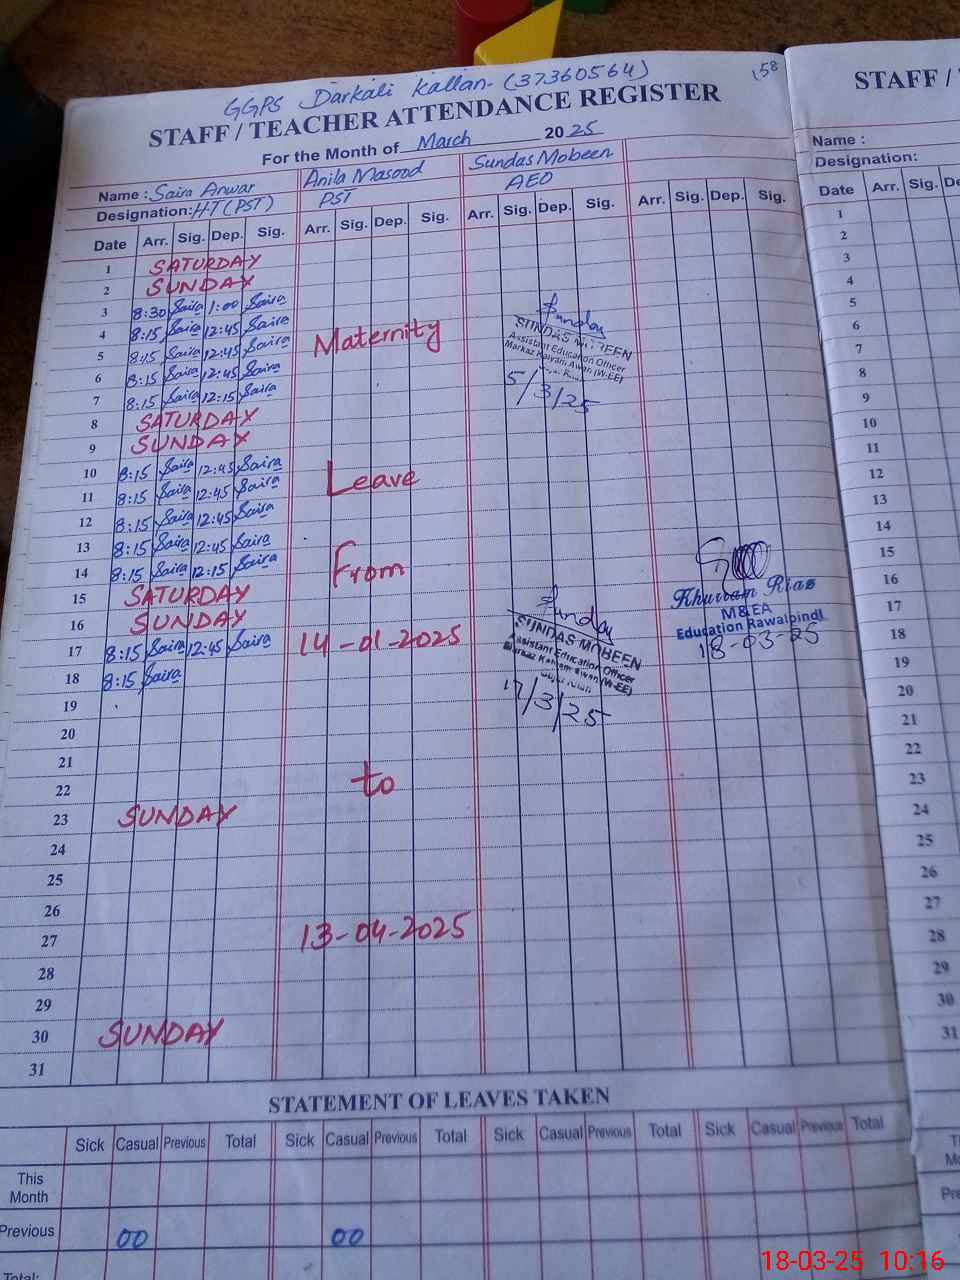 158
GGPS Darkali Kallan-(37360564)
STAFF / TEACHER ATTENDANCE REGISTER
For the Month of March 2025
Name : Saira Anwar Anila Masood Sundas Mobeen
Designation: HT (PST) PST AEO
Date Arr. Sig. Dep. Sig. Arr. Sig. Dep. Sig. Arr. Sig. Dep. Sig. Arr. Sig. Dep. Sig.
1 SATURDAY
2 SUNDAY
3 8:30 Saira 1:00 Saira
4 8:15 Saira 12:45 Saira
5 8:15 Saira 12:45 Saira
6 8:15 Saira 12:45 Saira
7 8:15 Saira 12:15 Saira
8 SATURDAY
9 SUNDAY
10 8:15 Saira 12:45 Saira
11 8:15 Saira 12:45 Saira
12 8:15 Saira 12:45 Saira
13 8:15 Saira 12:45 Saira
14 8:15 Saira 12:15 Saira
15 SATURDAY
16 SUNDAY
17 8:15 Saira 12:45 Saira
18 8:15 Saira
19
20
21
22
23 SUNDAY
24
25
26
27
28
29
30 SUNDAY
31
Maternity
Leave
From
14-01-2025
to
13-04-2025
Sundas
SUNDAS MOBEEN
Assistant Education Officer
Markaz Kalyam Awan (W-EE)
5/3/25
Sundas
SUNDAS MOBEEN
Assistant Education Officer
Markaz Kalyam Awan (W-EE)
17/3/25
Khurram Riaz
M&EA
Education Rawalpindi
18-03-25
STATEMENT OF LEAVES TAKEN
Sick Casual Previous Total Sick Casual Previous Total Sick Casual Previous Total Sick Casual Previous Total
This Month
Previous 00 00
Total:
STAFF /
Name :
Designation:
Date Arr. Sig.
1
2
3
4
5
6
7
8
9
10
11
12
13
14
15
16
17
18
19
20
21
22
23
24
25
26
27
28
29
30
31
18-03-25 10:16